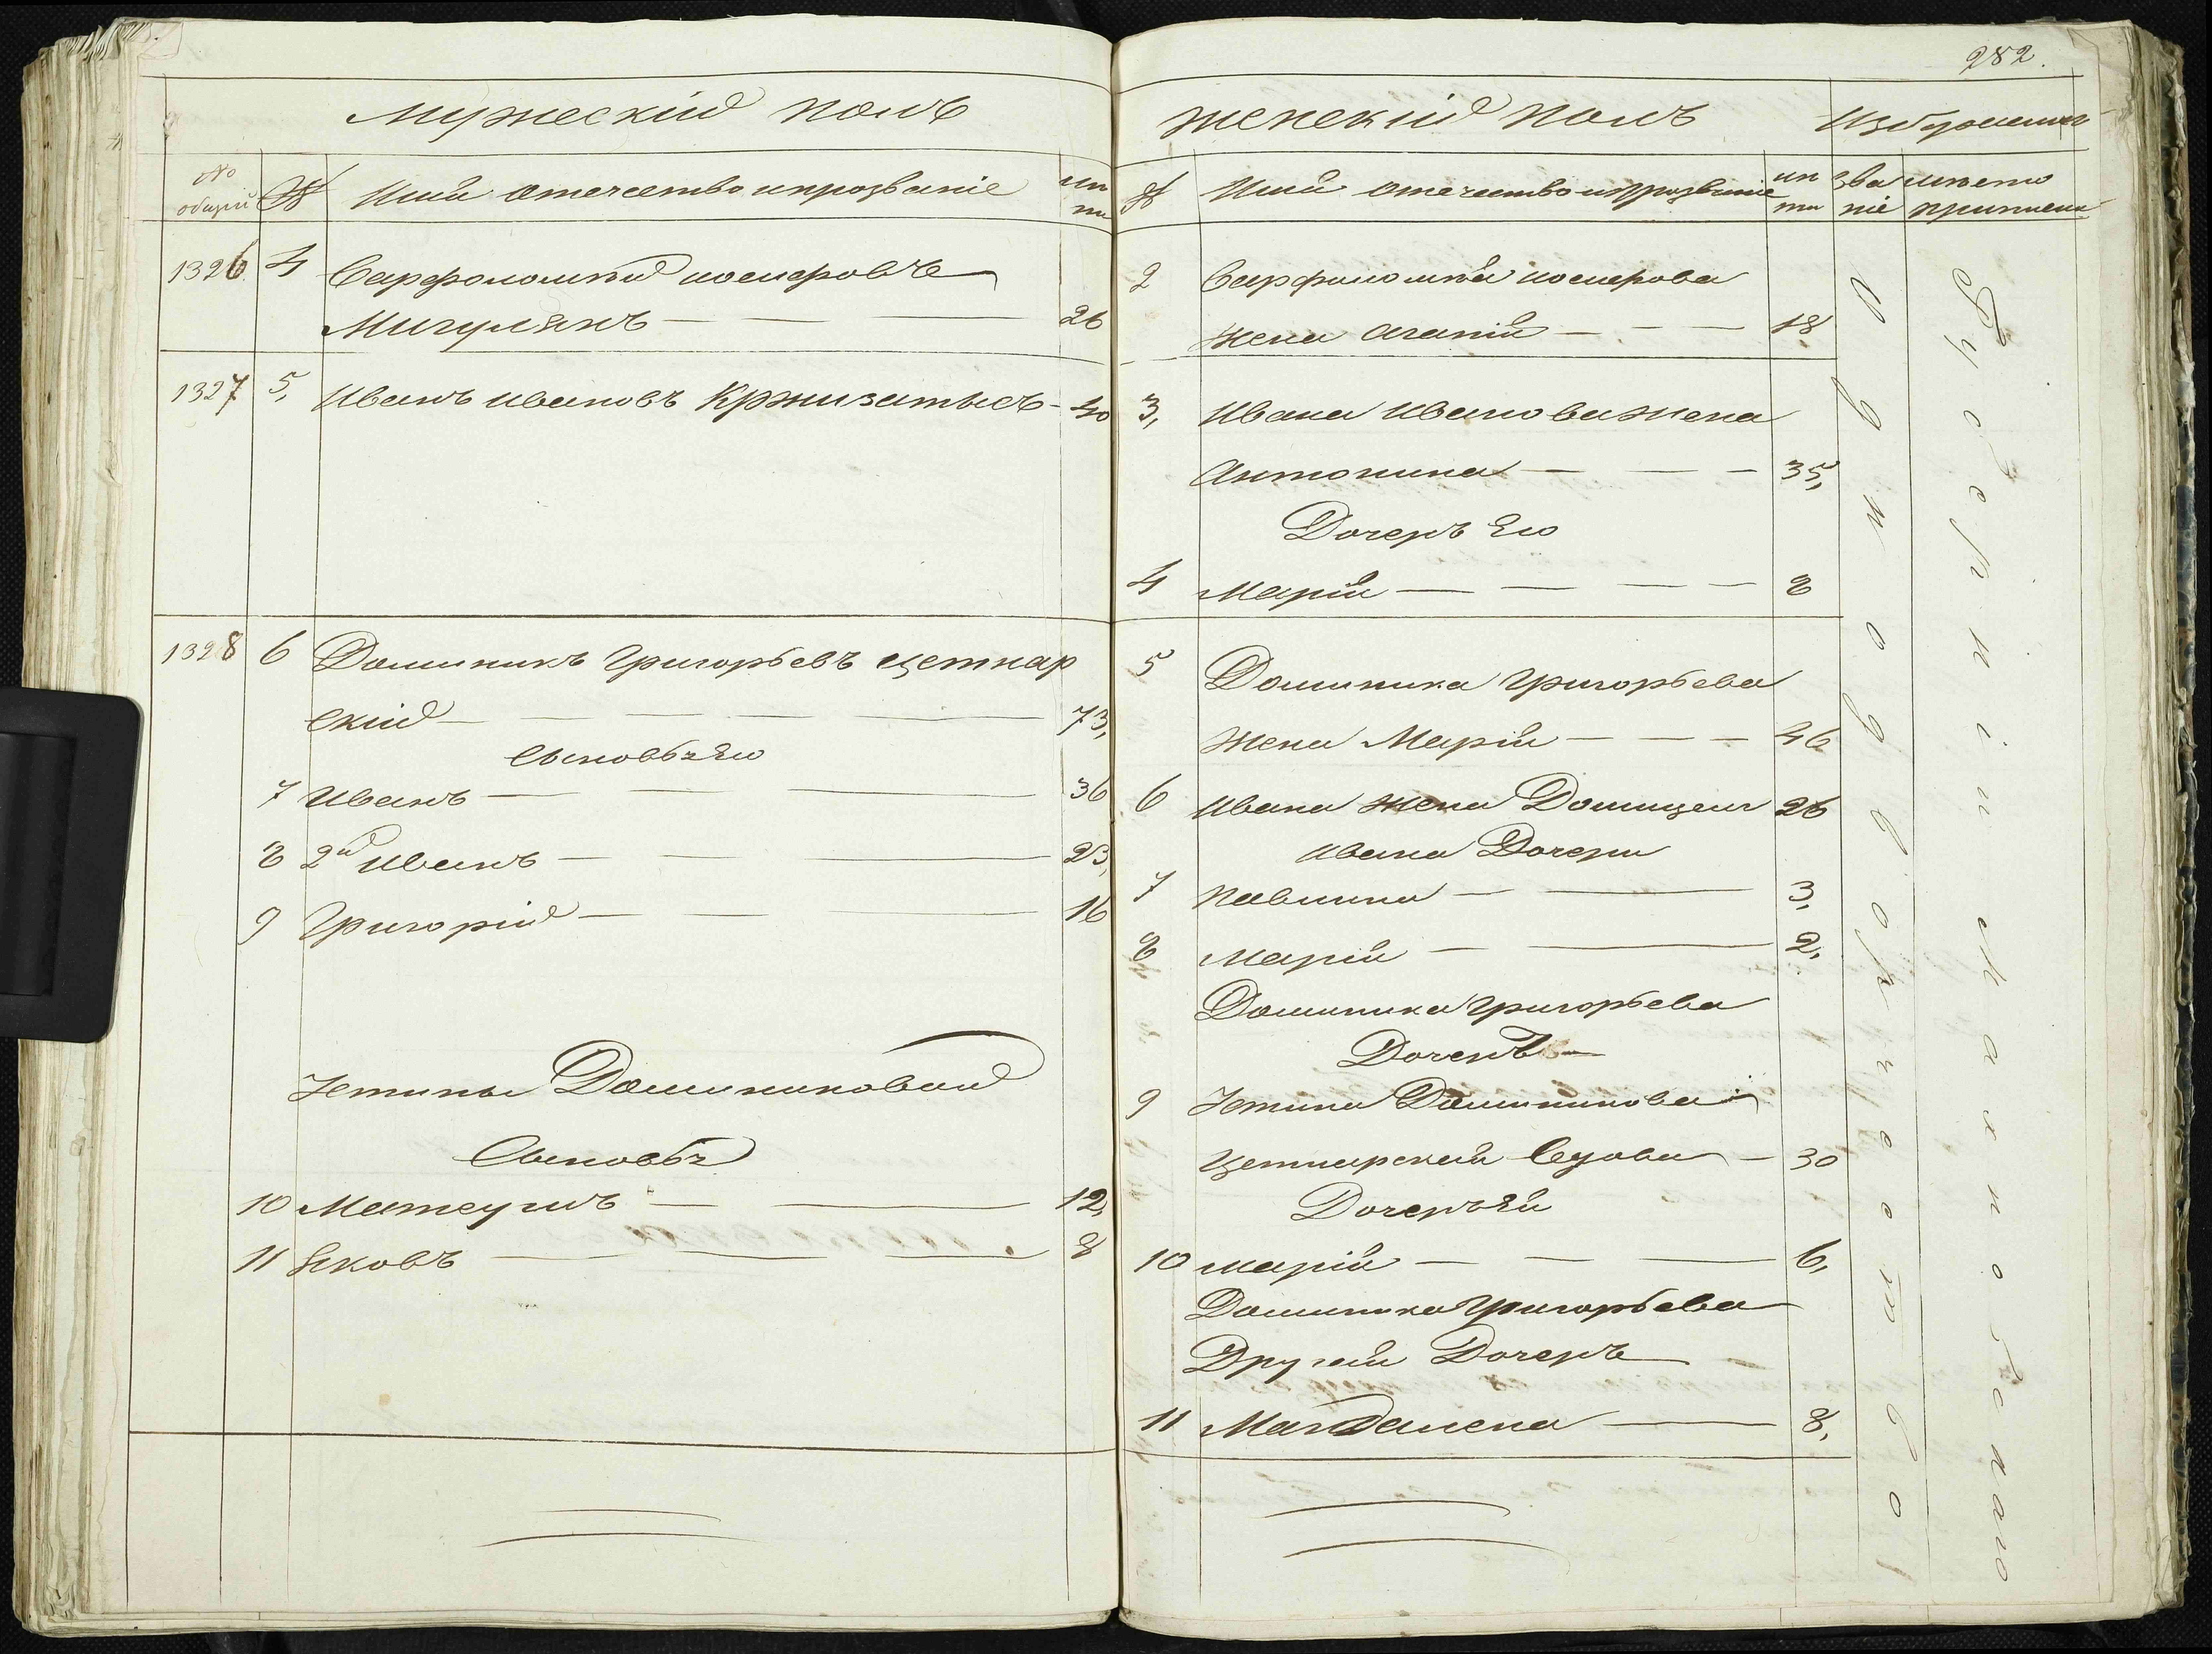 282.
Мужескій полъ
№ общій
№
Имя отечество и прозваніе
лѣта
1326 4 Варфоломѣй иосифовъ
Мигулянъ — — 26
1327 5, Иванъ ивановъ Кржизатысъ - 40
1328 6 Доминикъ Григорьевъ цетнар
скій — — — — 73,
Сыновья Его
7 Иванъ — — — 36
8 2й Иванъ — — — 23,
9 Григорій — — — 16
Юстины Доминиковой
Сыновья
10 Матеушъ — — 12,
11 Яковъ — — — 8
Женскій полъ
№
Имя отечество и прозваніе
лѣта
званіе
мѣсто
2 Варфоломѣя иосифова
жена Агапія — — — 18
3, Ивана Иванова жена
Антонина — — — 35,
Дочерь Его
4 Марія — — — — 8
5 Доминика Григорьева
жена Марія — — — 46
6 Ивана жена Домицеля 26
Ивана Дочери
7 Павлина — — 3,
8 Марія — — 2,
Доминика Григорьева
Дочерь —
9 Юстина Доминикова
Цетнарская вдова — 30
Дочерь Ея
10 марія — — — 6,
Доминика Григорьева
Другая Дочерь
11 Магдалена — 8,
Однодворческое
Губерніи